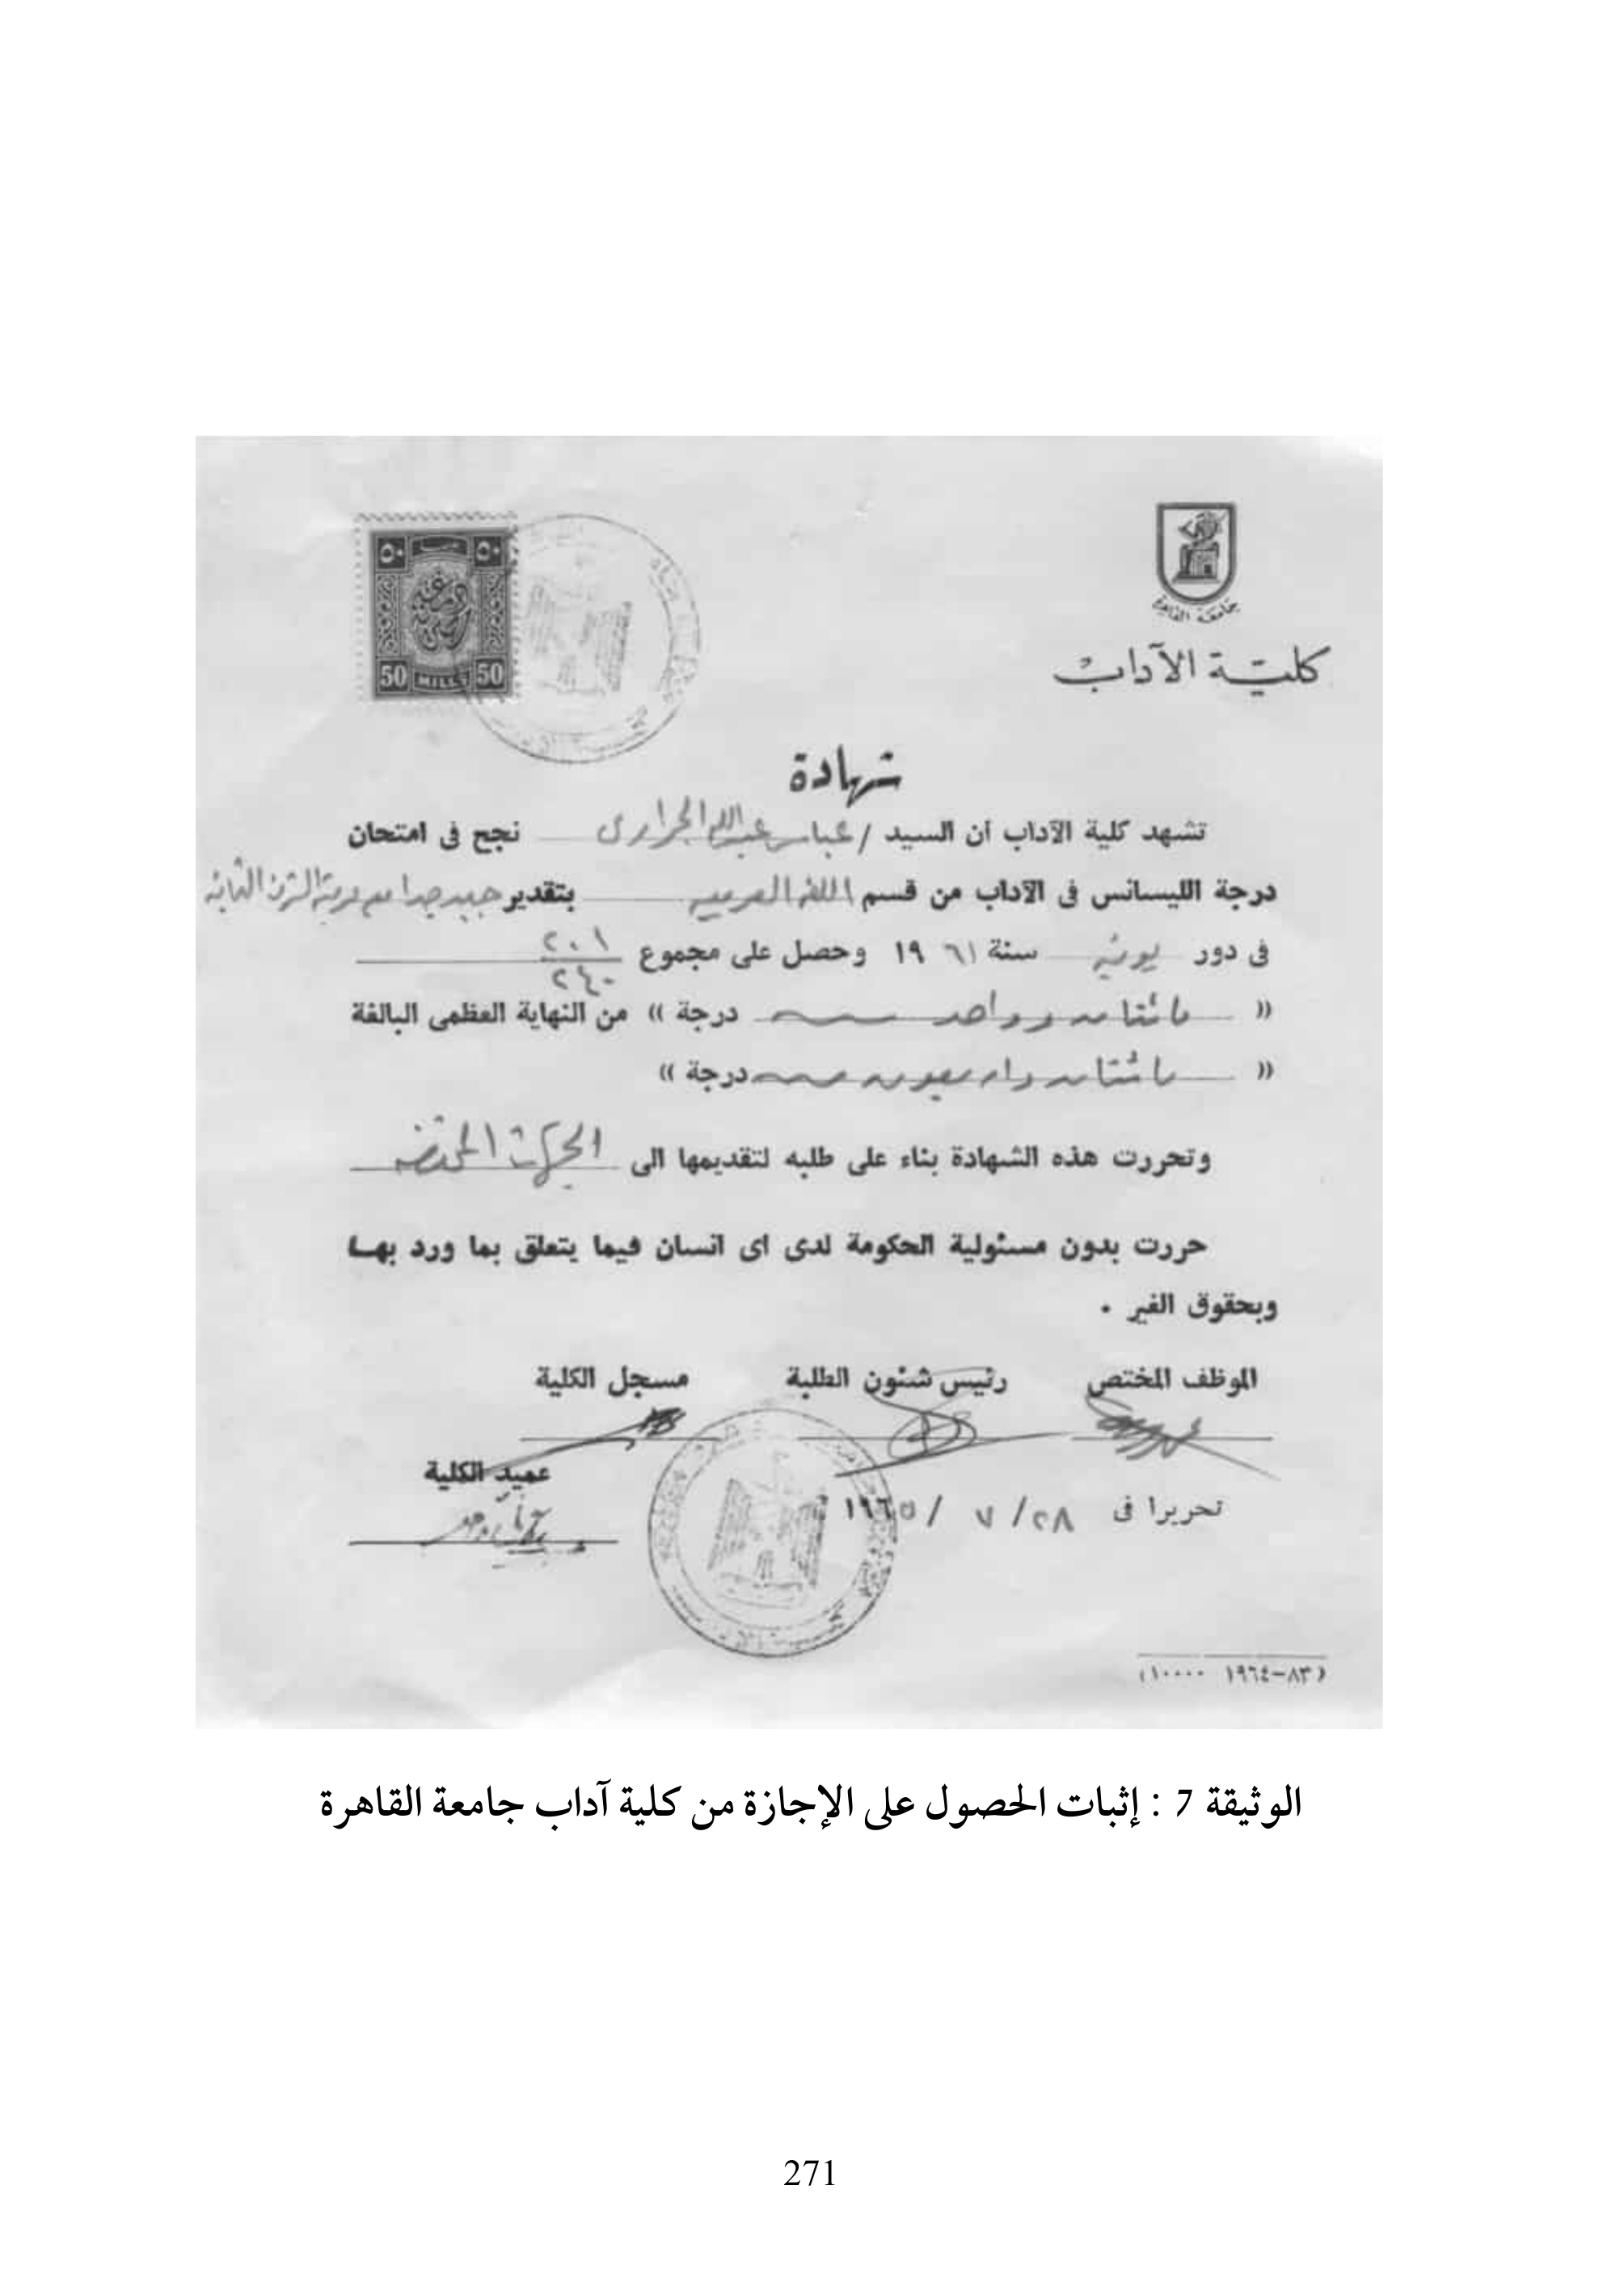 ٥٠ ٥٠
50 MILLS 50
جامعة القاهرة
كلية الآداب
شهادة
تشهد كلية الآداب أن السيد / عباس عبد الله الجرارى نجح فى امتحان
درجة الليسانس فى الآداب من قسم اللغة العربية بتقدير جيد جدا مع مرتبة الشرف الثانية
فى دور يونيه سنة ١٩٦١ وحصل على مجموع ٢٠١/٢٤٠
« مائتان وواحد درجة » من النهاية العظمى البالغة
« مائتان واربعون درجة »
وتحررت هذه الشهادة بناء على طلبه لتقديمها الى الجهات المختصة
حررت بدون مسئولية الحكومة لدى اى انسان فيما يتعلق بما ورد بها
وبحقوق الغير .
الموظف المختص رئيس شئون الطلبة مسجل الكلية
عميد الكلية
تحريرا فى ٢٨ / ٧ / ١٩٦٥
(٨٣-١٩٦٤ ١٠٠٠٠)
الوثيقة 7 : إثبات الحصول على الإجازة من كلية آداب جامعة القاهرة
271